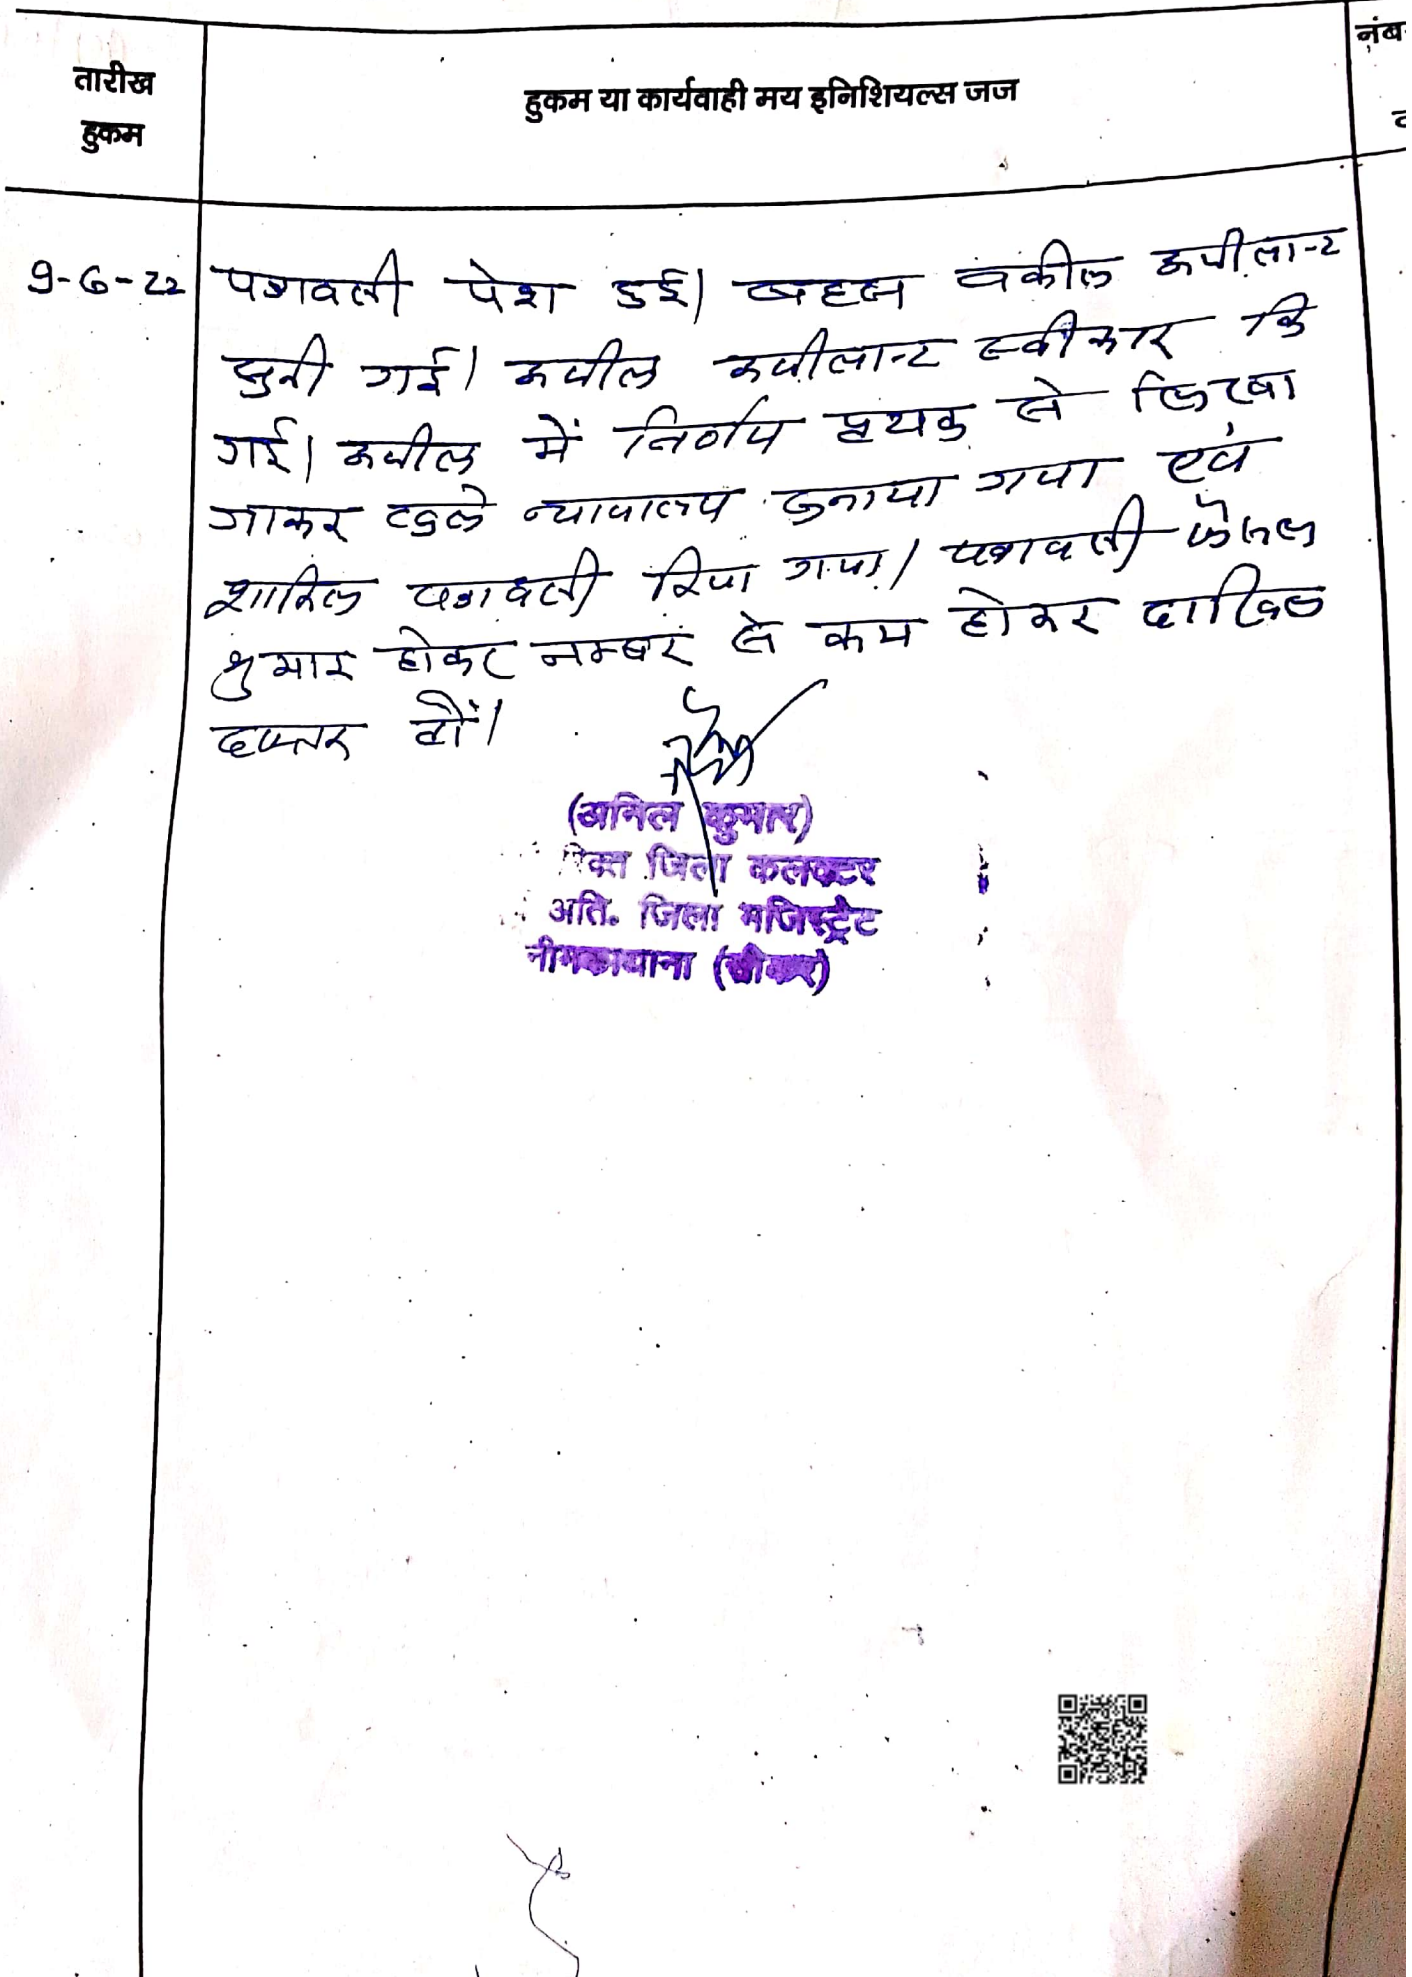 तारीख
हुकम
हुकम या कार्यवाही मय इनिशियल्स जज
नंब
9-6-22 पत्रावली पेश हुई। बहस वकील अपीलान्ट
सुनी गई। अपील अपीलान्ट स्वीकार कि
गई। अपील में निर्णय पृथक से लिखा
जाकर खुले न्यायालय सुनाया गया एवं
शामिल पत्रावली किया गया। पत्रावली फैसल
शुमार होकर नम्बर से कम होकर दाखिल
दफ्तर हों।
(अनिल कुमार)
रिक्त जिला कलक्टर
अति. जिला मजिस्ट्रेट
नीमकाथाना (सीकर)